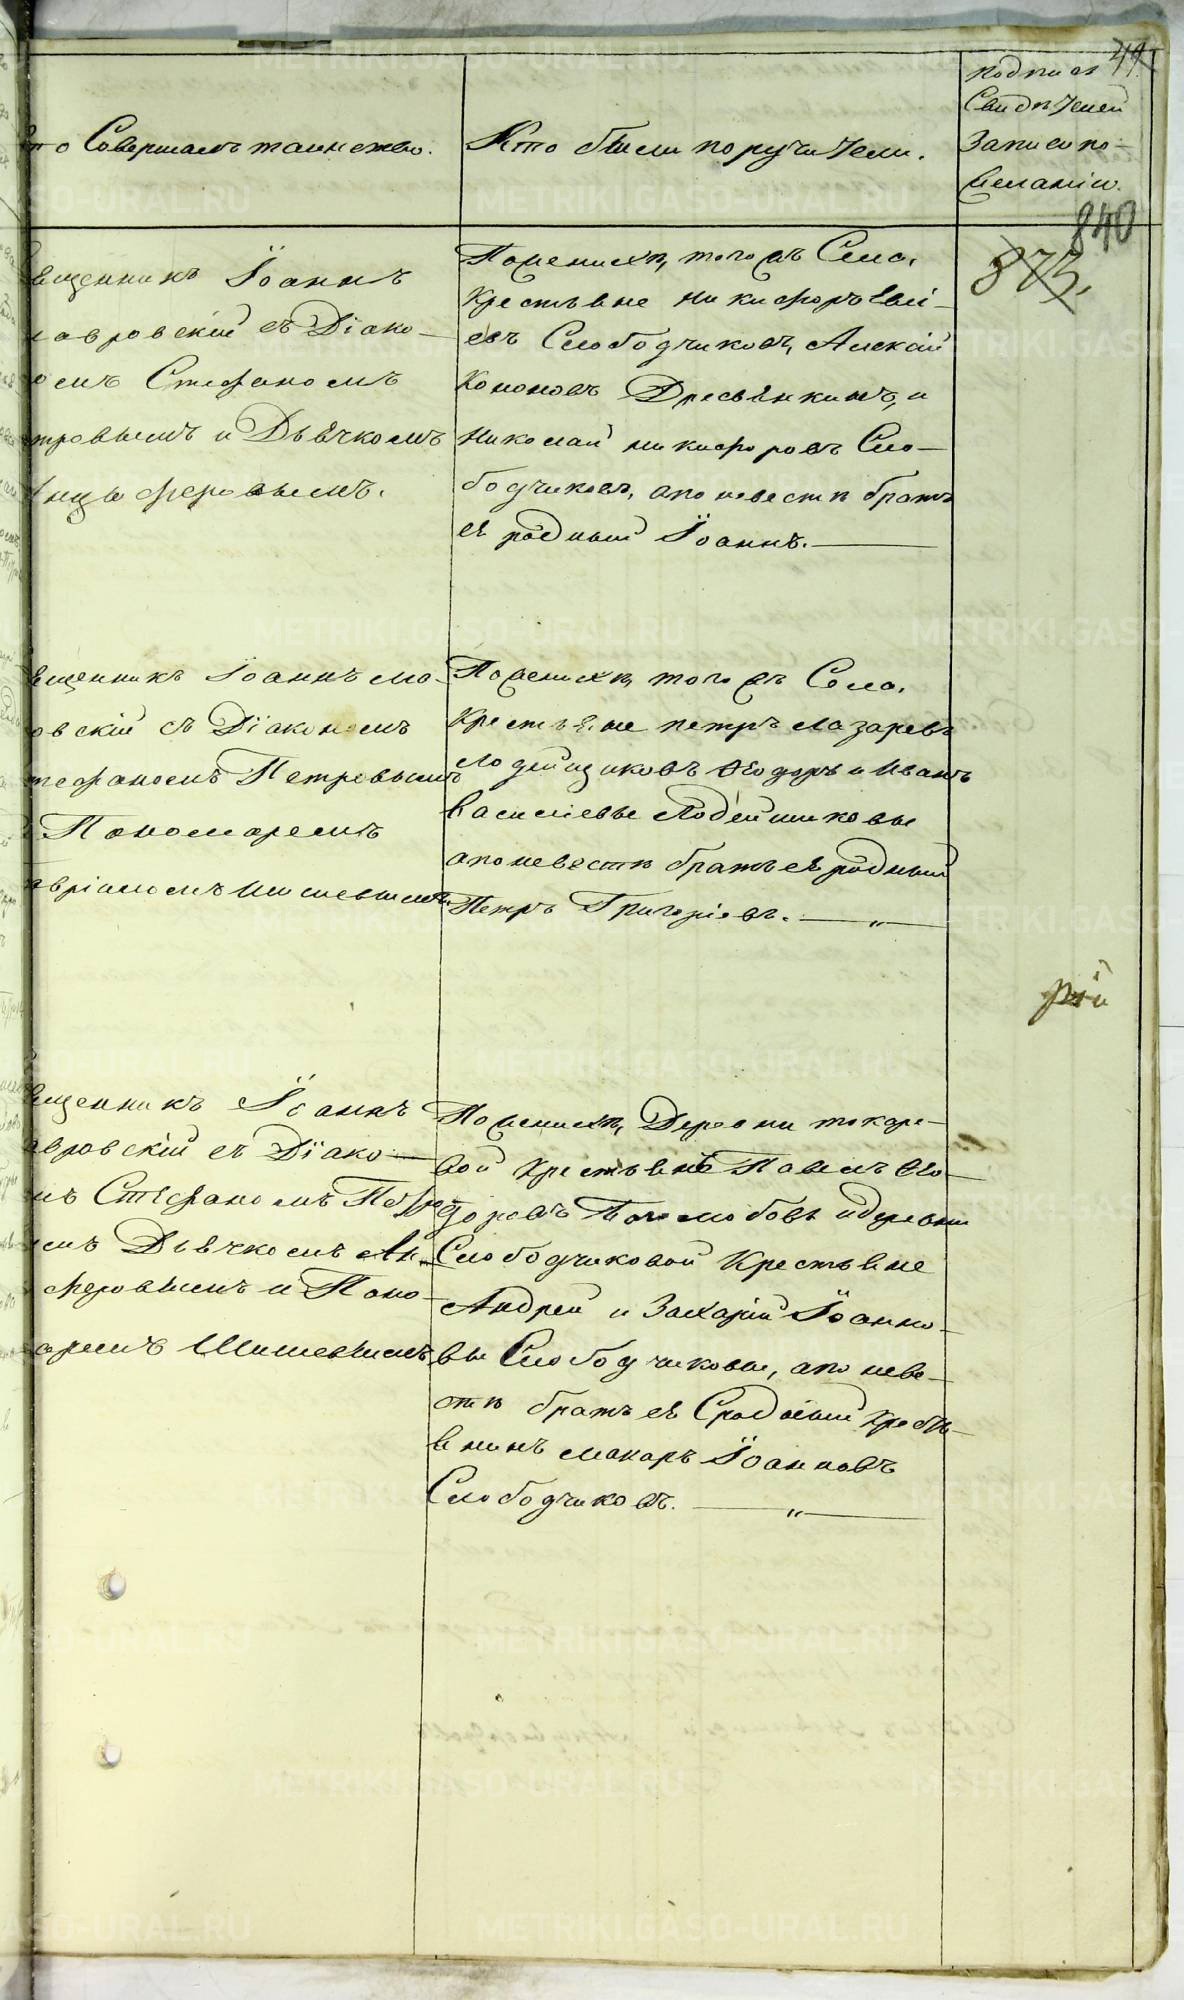 44
то Совершалъ таинство.
Кто были поручители.
подписи
Свидѣтелей
Записи по
желанію.
840
873.
вященникъ Іоаннъ
лавровскій съ Діако-
омъ Стефаномъ
тровымъ и Дьячкомъ
Анцыферовымъ.
По женихѣ, того жъ Села,
Крестьяне никифоръ
евъ Слободчиковъ, Алексѣй
Кононовъ Дресвянкинъ, и
Николай никифоровъ Сло-
бодчиковъ, а по невестѣ братъ
ея родный Іоаннъ.
вященникъ Іоаннъ ла-
овскій съ Діакономъ
тефаномъ Петровымъ
Пономаремъ
авріиломъ Шишевымъ
По женихѣ, того жъ Села,
Крестьяне петръ лазаревъ
лодейщиковъ Ѳеодоръ и Иванъ
василіевы Лодейщиковы
а по невестѣ братъ ея родный
Петръ Григоріевъ. „
рій
вященникъ Іоаннъ
авровскій съ Діако-
мъ Стефаномъ Петро
мъ Дьячкомъ Ан-
феровымъ и Поно-
аремъ Шишевымъ
По женихѣ, Деревни токаре-
вой крестьяне Павелъ Ѳео-
доровъ Боголюбовъ и деревни
Слободчиковой Крестьяне
Андрей и Захарій Іоанно-
вы Слободчиковы, а по неве-
стѣ братъ ея Сродный кресть-
янинъ макаръ Іоанновъ
Слободчиковъ. „